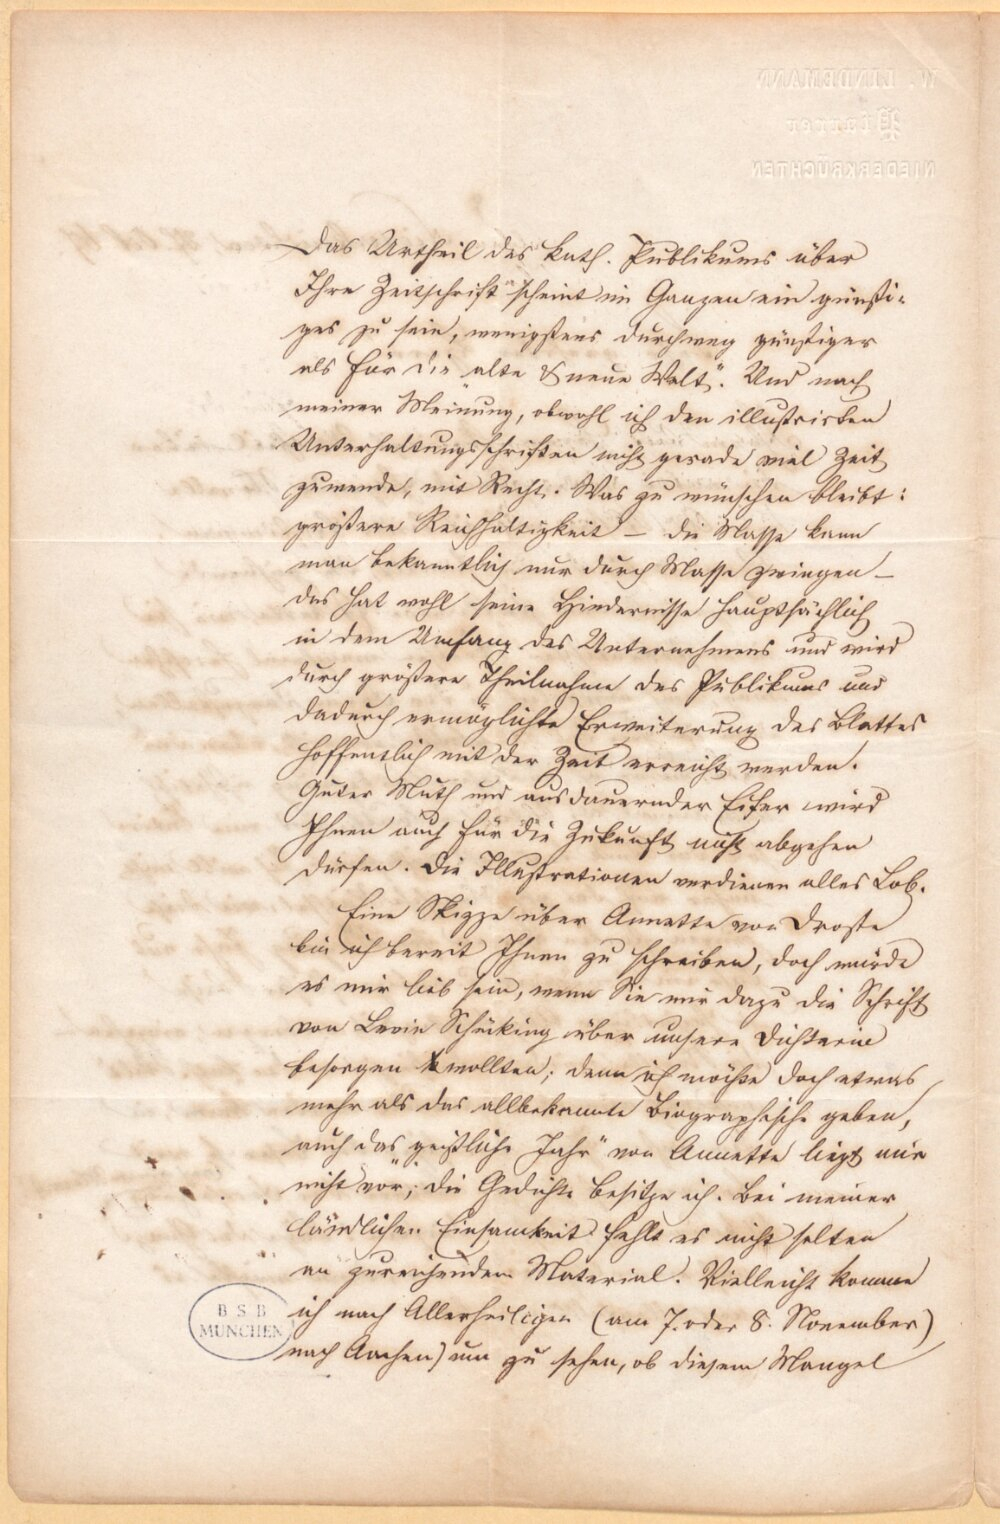 W. LINDEMANN
Pfarrer
NIEDERKRÜCHTEN
Das Urtheil des kath. Publikums über
Ihre Zeitschrift scheint im Ganzen ein günsti-
ges zu sein, wenigstens durchweg günstiger
als für die „alte & neue Welt“. Und nach
meiner Meinung, obwohl ich den illustrirten
Unterhaltungsschriften nicht gerade viel Zeit
zuwende, mit Recht. Was zu wünschen bleibt:
größere Reichhaltigkeit – die Masse kann
man bekanntlich nur durch Masse zwingen –
das hat wohl seine Hindernisse hauptsächlich
in dem Umfang des Unternehmens und wird
durch größere Theilnahme des Publikums und
dadurch ermöglichte Erweiterung des Blattes
hoffentlich mit der Zeit erreicht werden.
Guter Muth und ausdauernder Eifer wird
Ihnen auch für die Zukunft nicht abgehen
dürfen. Die Illustrationen verdienen alles Lob.
Eine Skizze über Annette von Droste
bin ich bereit Ihnen zu schreiben, doch würde
es mir lieb sein, wenn Sie mir dazu die Schrift
von Levin Schücking über unsere Dichterin
besorgen wollten; denn ich möchte doch etwas
mehr als das allbekannte Biographische geben,
auch das „geistliche Jahr“ von Annette liegt mir
nicht vor; die Gedichte besitze ich. Bei meiner
ländlichen Einsamkeit fehlt es nicht selten
an zureichendem Material. Vielleicht komme
ich nach Allerheiligen (am 7. oder 8. November)
nach Aachen, um zu sehen, ob diesem Mangel
B S B
MÜNCHEN